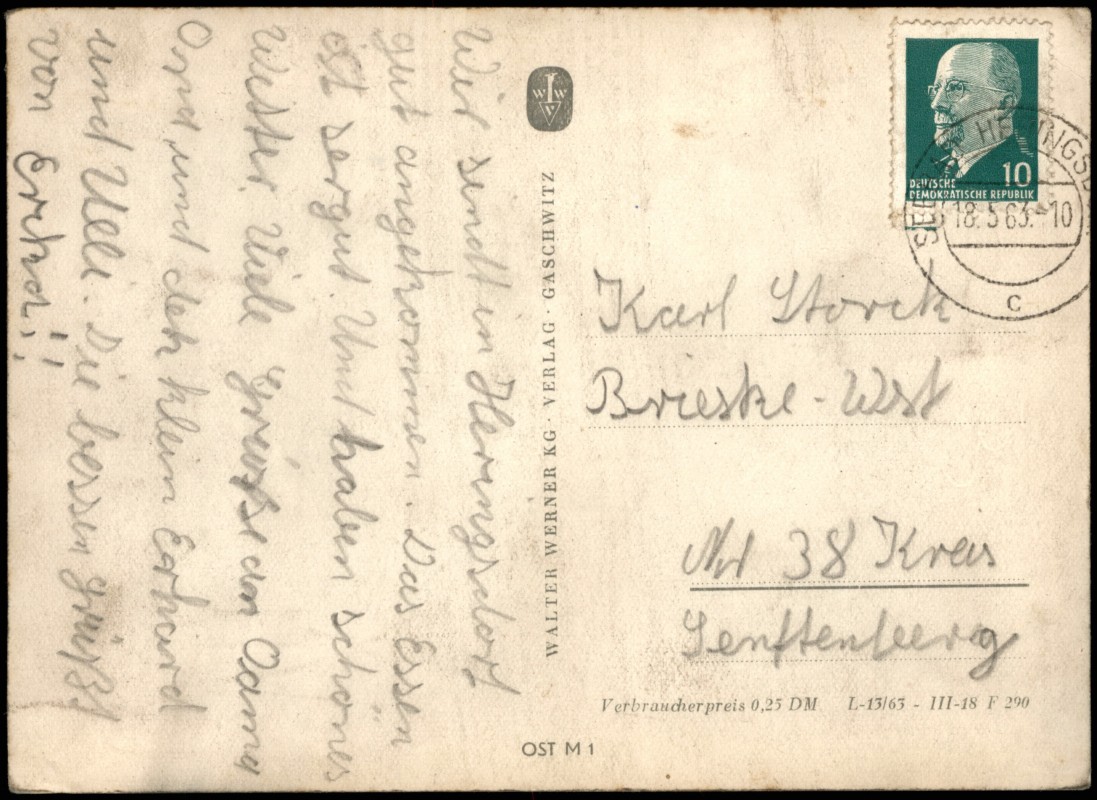 Wir sind in Heringsdorf
gut angekommen. Das Essen
ist sergut Und haben schönes
Wetter. Viele Grüße an
Opa und den klein Erhard
und Ulli. Die besen grüßt
von Erika!!
W I W
V
WALTER WERNER KG · VERLAG · GASCHWITZ
10
DEUTSCHE
DEMOKRATISCHE REPUBLIK
SEEBAD HERINGSD
18.5.63.-10
c
Karl Storck
Brieske-West
Nr 38 Kreis
Senftenberg
Verbraucherpreis 0,25 DM L-13/63 - III-18 F 290
OST M 1